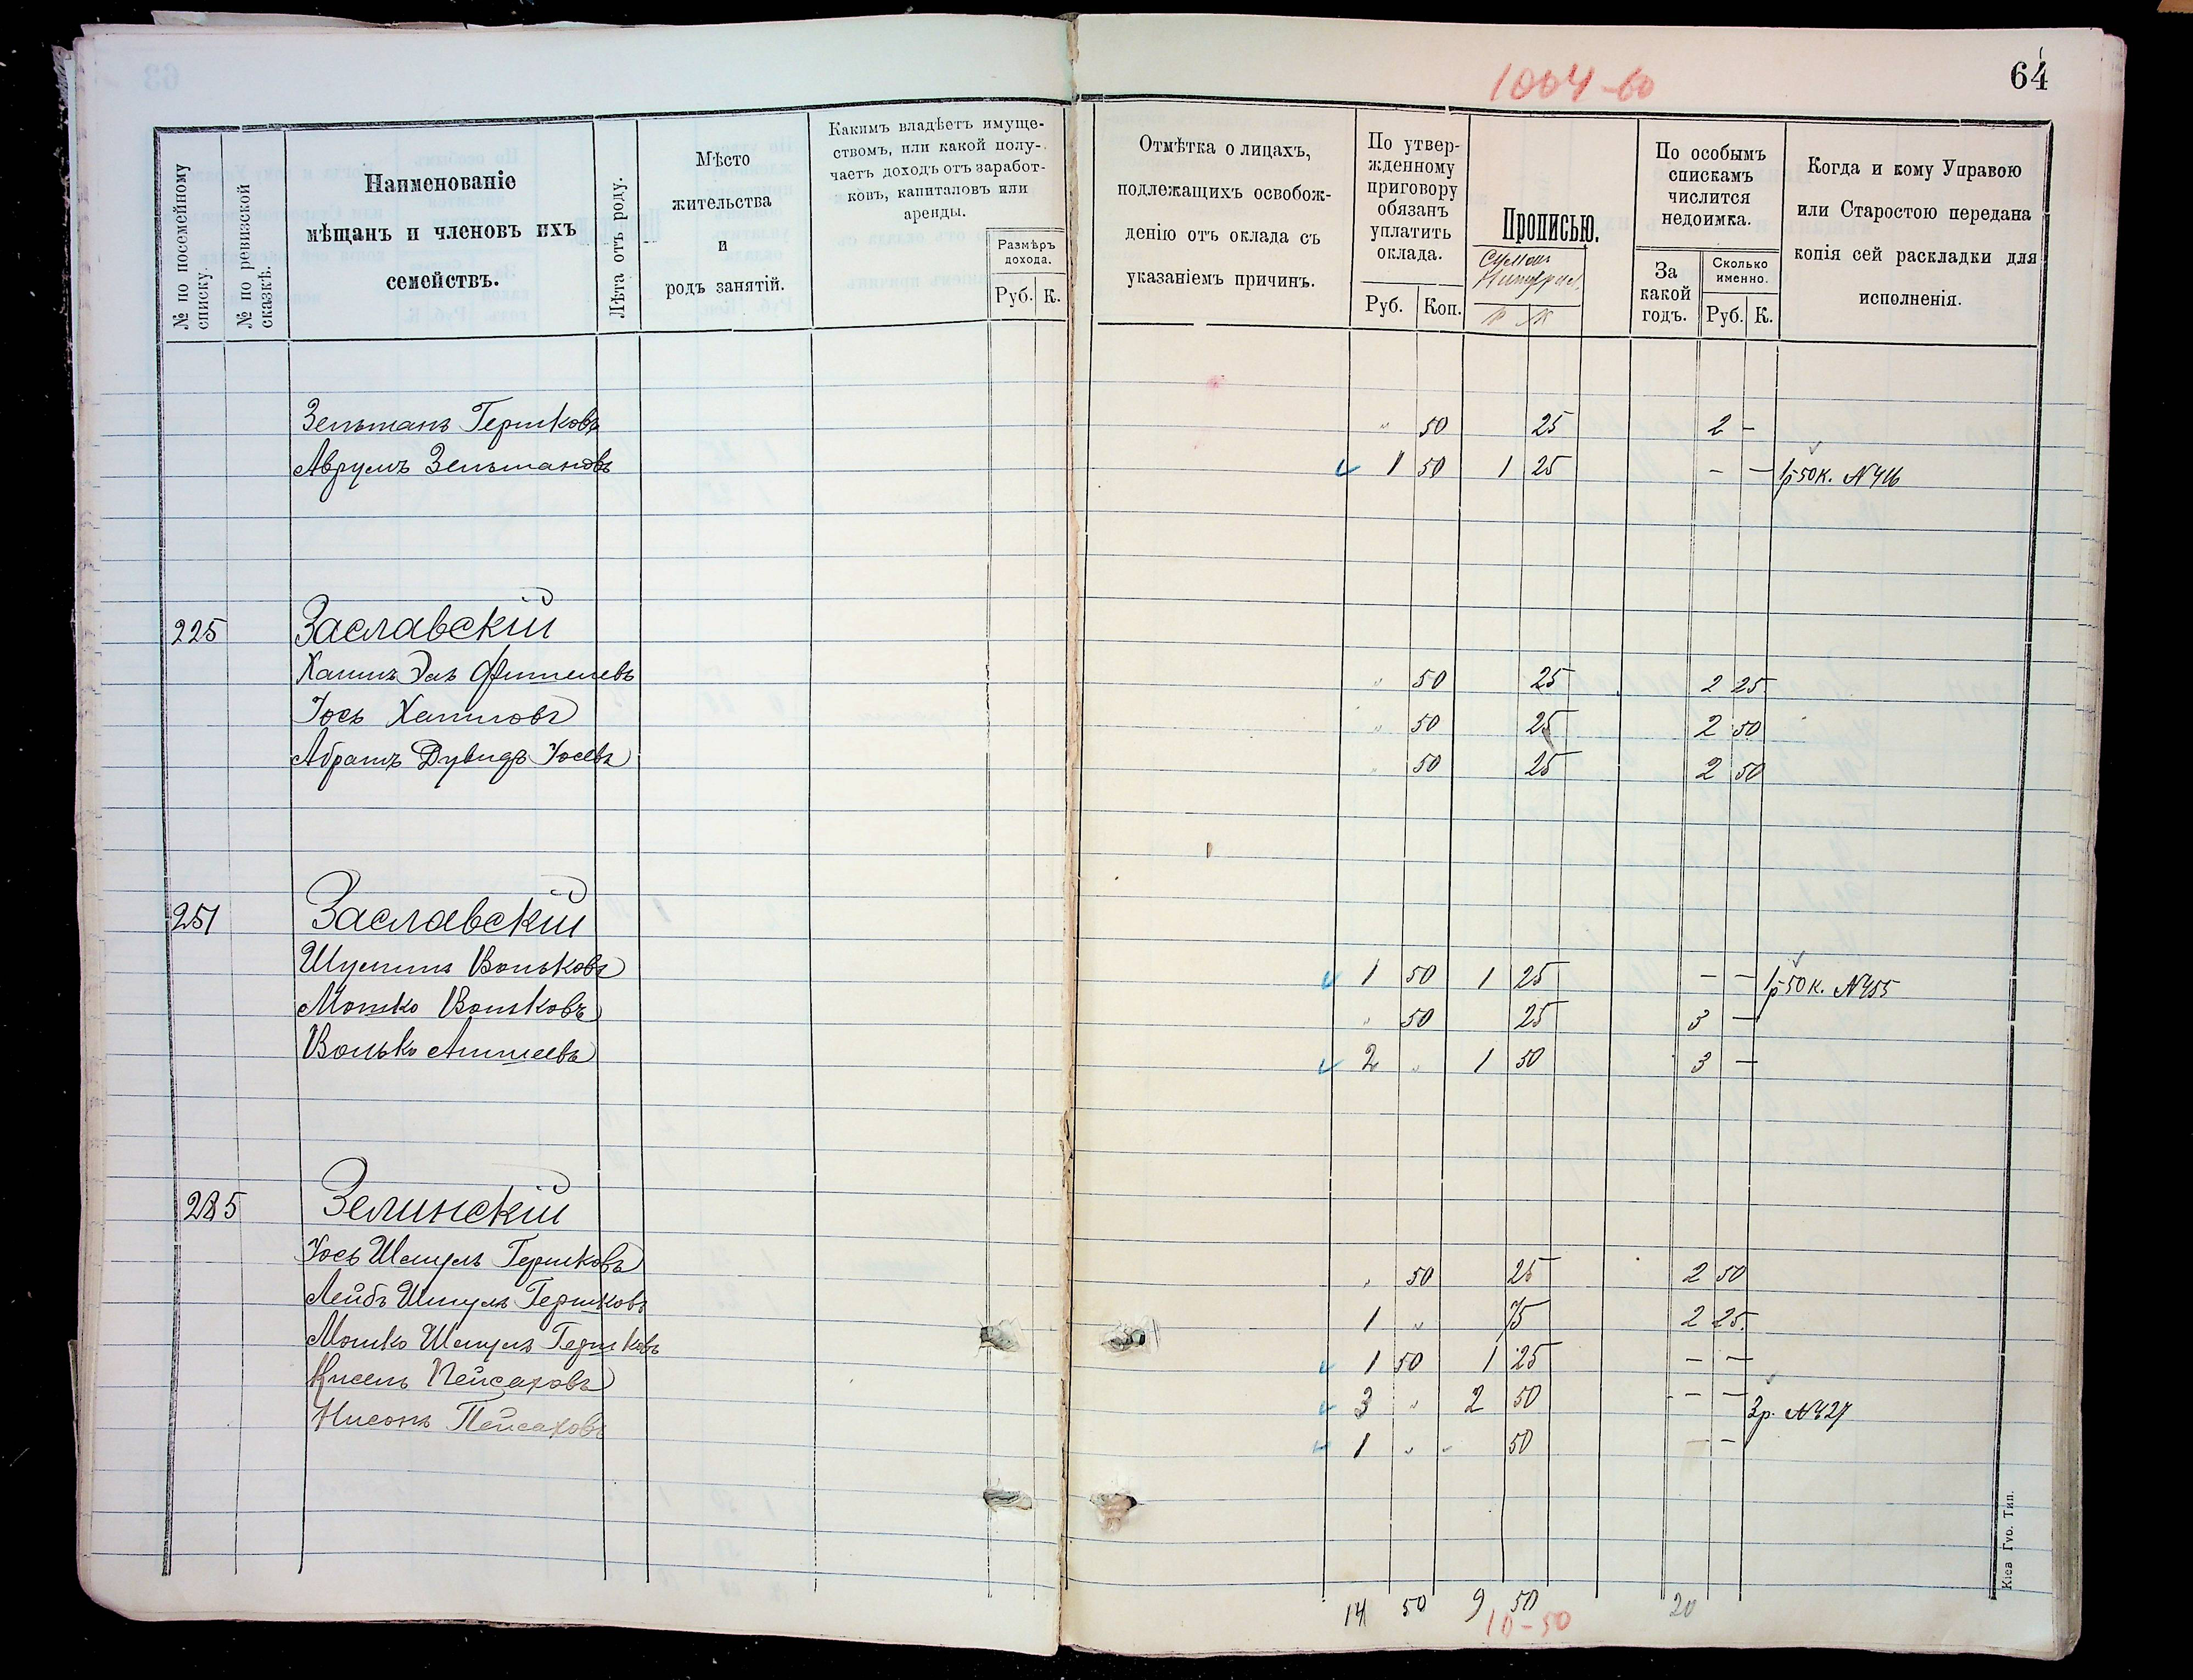 1004-60
64
№ по посемейному списку.
№ по ревизской сказкѣ.
Наименованіе
мѣщанъ и членовъ ихъ
семействъ.
Лѣта отъ роду.
Мѣсто
жительства
и
родъ занятій.
Какимъ владѣетъ имуще-
ствомъ, или какой полу-
чаетъ доходъ отъ заработ-
ковъ, капиталовъ или
аренды.
Размѣръ
дохода.
Руб. К.
Отмѣтка о лицахъ,
подлежащихъ освобож-
денію отъ оклада съ
указаніемъ причинъ.
По утвер-
жденному
приговору
обязанъ
уплатить
оклада.
Руб. Коп.
Прописью.
По особымъ
спискамъ
числится
недоимка.
За
какой
годъ.
Сколько
именно.
Руб. К.
Когда и кому Управою
или Старостою передана
копія сей раскладки для
исполненія.
Зельманъ Гершковъ " 50 25 2 -
Аврумъ Зельмановъ 1 50 1 25 - - 1р 50к. N416
225 Заславскій
Хаимъ Эль Фишелевъ " 50 25 2 25
Іось Хаимовъ " 50 25 2 50
Абрамъ Дувидъ Іосевъ " 50 25 2 50
251 Заславскій
Шулимъ Вольковъ 1 50 1 25 - - 1р 50к. N455
Мошко Вольковъ " 50 25 3 -
Волько 2 " 1 50 3 -
285 Зелинскій
Іось Шмуль Гершковъ " 50 25 2 50
Лейбъ Шмуль Гершковъ 1 " 75 2 25
Мошко Шмуль Гершковъ 1 50 1 25 - -
Кисель Пейсаховъ 3 " 2 50 - - 3р. N427
Нисонъ Пейсаховъ 1 " " 50 - -
14 50 9 50 20
10-50
Кіев. Губ. Тип.